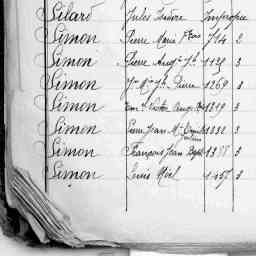 Silard Jules Isidore Impropre
Simon Pierre Marie Fçois 764 2
Simon Pierre Aug. 1129 3
Simon Pierre 1269 3
Simon Victor Ange 1319 3
Simon Pierre Jean M. 1332 3
Simon François Jean Bapt. 1388 3
Simon Louis 1457 3